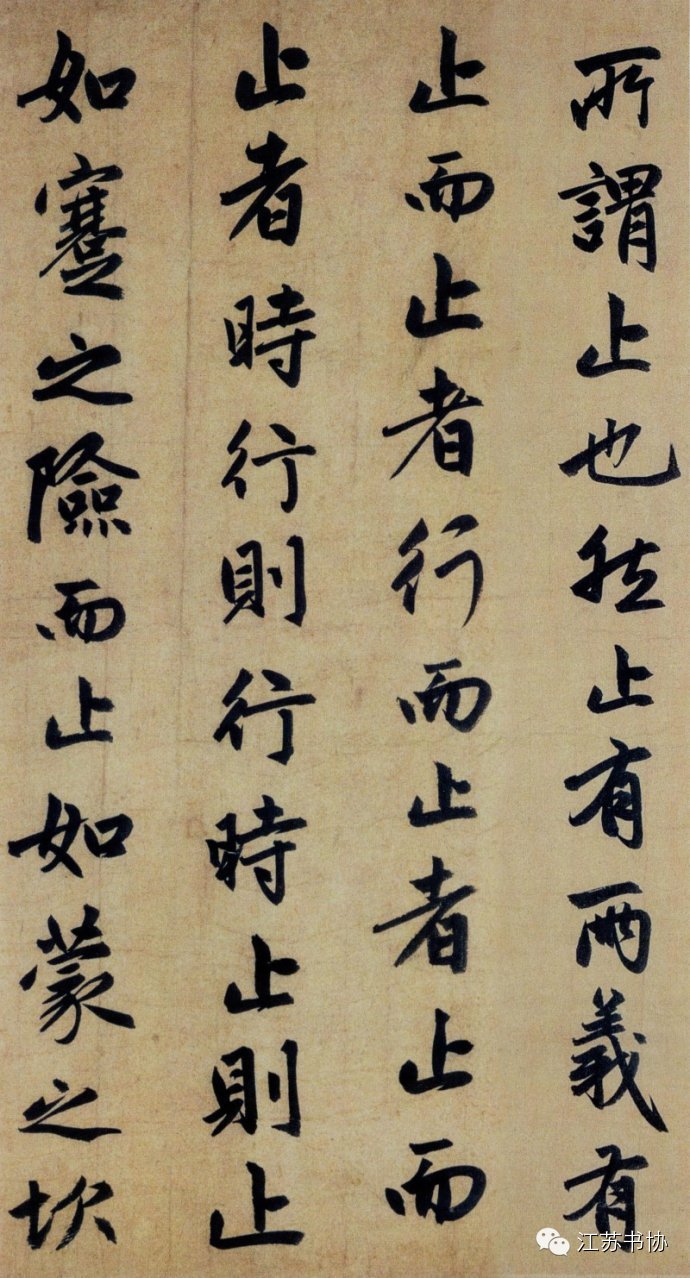 所謂止也然止有兩義有
止而止者行而止者止而
止者時行則行時止則止
如蹇之險而止如蒙之坎
江苏书协